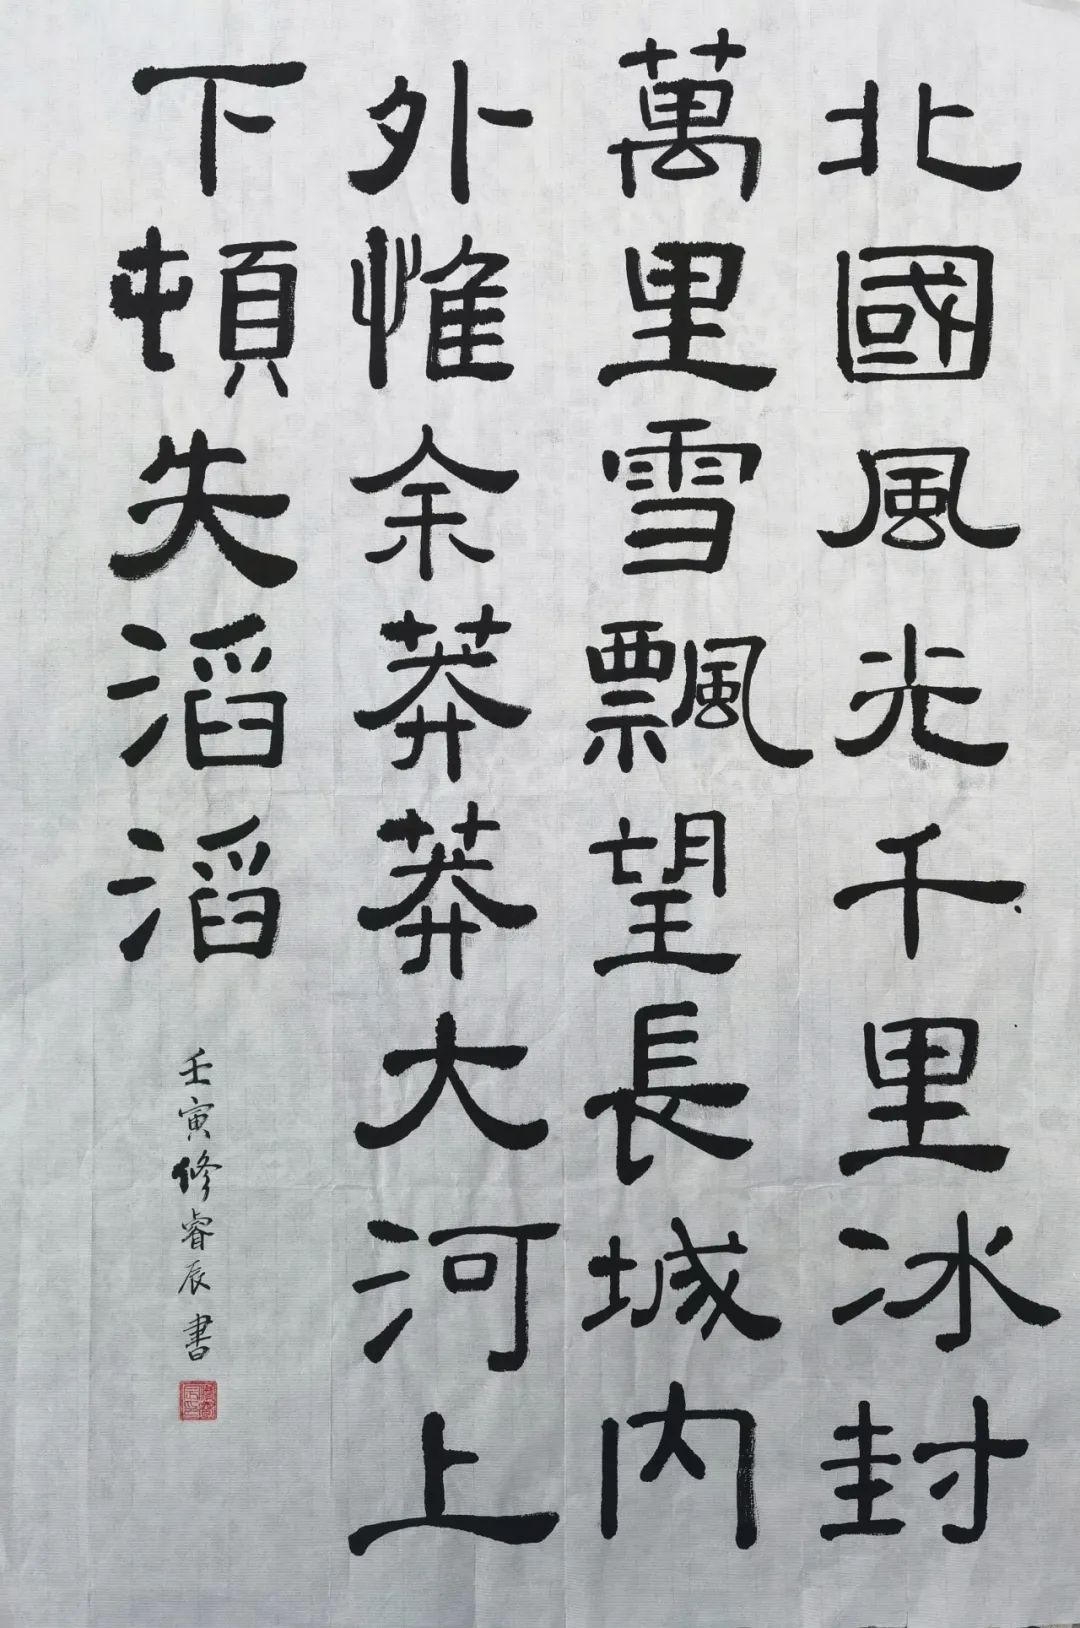 北國風光千里冰封
萬里雪飄望長城内
外惟余莽莽大河上
下頓失滔滔
壬寅修睿辰書